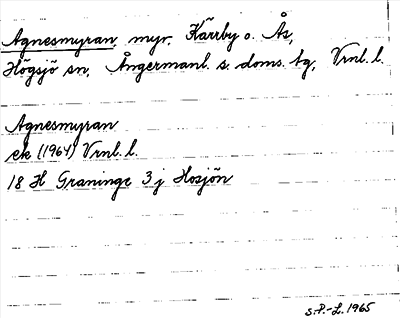 Agnesmyran, myr, Kärrby o. Ås,
Högsjö sn, Ångermanl. s. doms. tg, Vrnl. l.
Agnesmyran
ek (1964) Vrnl. l.
18 H Graninge 3 j Hosjön
S.P.-L. 1965